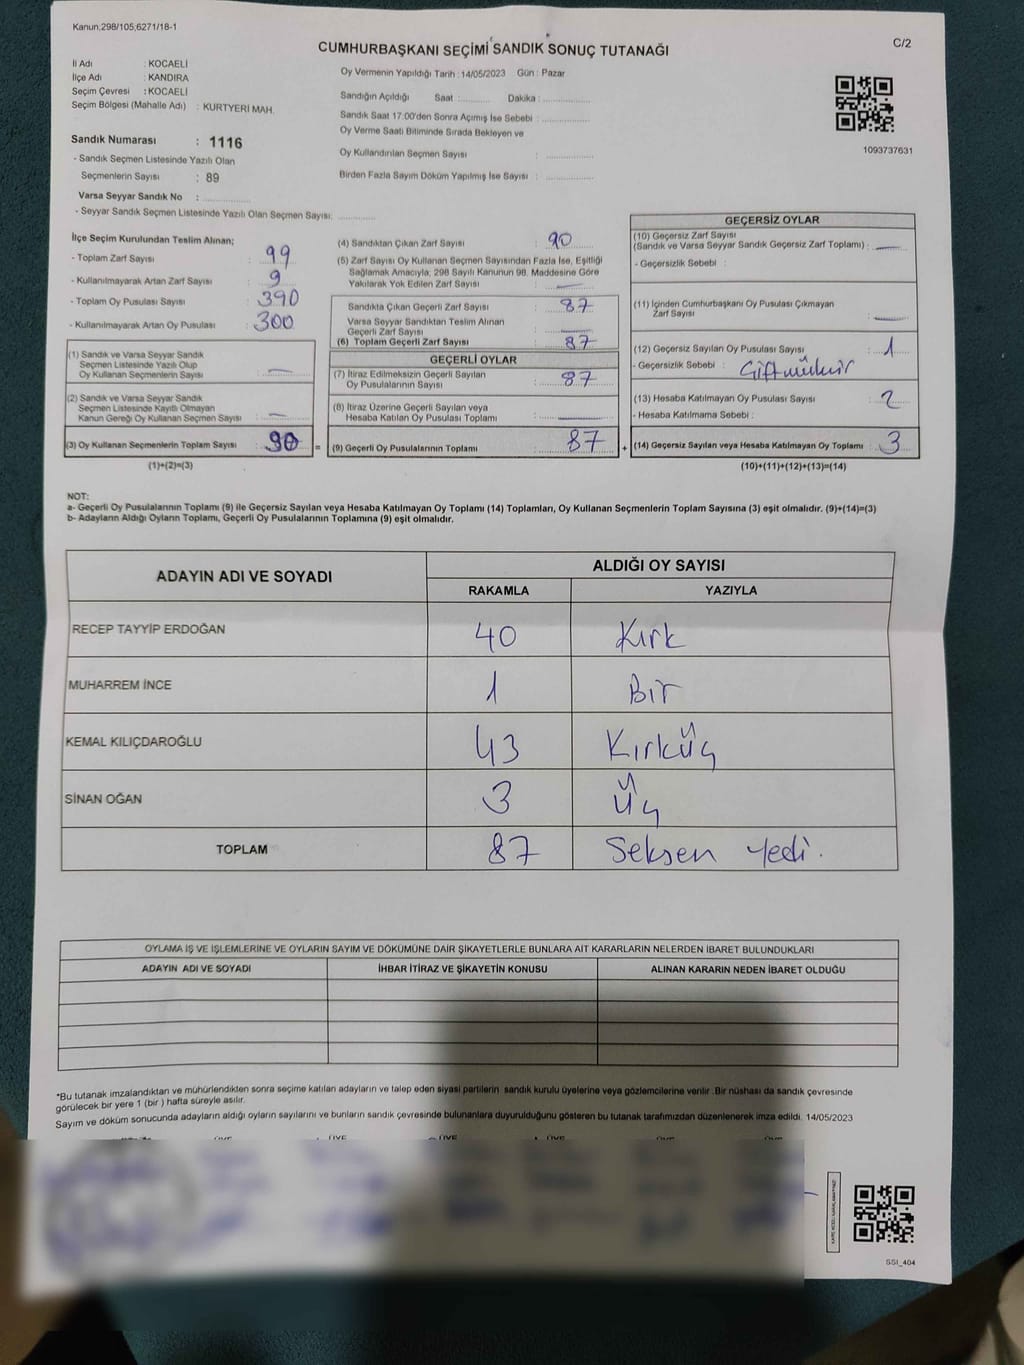 Kanun,298/105,6271/18-1
CUMHURBAŞKANI SEÇİMİ SANDIK SONUÇ TUTANAĞI
C/2
İl Adı : KOCAELİ
İlçe Adı : KANDIRA
Seçim Çevresi : KOCAELİ
Seçim Bölgesi (Mahalle Adı) : KURTYERİ MAH.
Sandık Numarası : 1116
- Sandık Seçmen Listesinde Yazılı Olan
Seçmenlerin Sayısı : 89
Varsa Seyyar Sandık No :
- Seyyar Sandık Seçmen Listesinde Yazılı Olan Seçmen Sayısı:
Oy Vermenin Yapıldığı Tarih : 14/05/2023 Gün : Pazar
Sandığın Açıldığı Saat : Dakika :
Sandık Saat 17:00'den Sonra Açımış İse Sebebi :
Oy Verme Saati Bitiminde Sırada Bekleyen ve
Oy Kullandırılan Seçmen Sayısı :
Birden Fazla Sayım Döküm Yapılmış İse Sayısı :
1093737631
İlçe Seçim Kurulundan Teslim Alınan;
- Toplam Zarf Sayısı : 99
- Kullanılmayarak Artan Zarf Sayısı : 9
- Toplam Oy Pusulası Sayısı : 390
- Kullanılmayarak Artan Oy Pusulası : 300
(1) Sandık ve Varsa Seyyar Sandık
Seçmen Listesinde Yazılı Olup
Oy Kullanan Seçmenlerin Sayısı : —
(2) Sandık ve Varsa Seyyar Sandık
Seçmen Listesinde Kayıtlı Olmayan
Kanun Gereği Oy Kullanan Seçmen Sayısı : —
(3) Oy Kullanan Seçmenlerin Toplam Sayısı : 90 =
(1)+(2)=(3)
(4) Sandıktan Çıkan Zarf Sayısı : 90
(5) Zarf Sayısı Oy Kullanan Seçmen Sayısından Fazla İse, Eşitliği
Sağlamak Amacıyla; 298 Sayılı Kanunun 98. Maddesine Göre
Yakılarak Yok Edilen Zarf Sayısı : —
Sandıkta Çıkan Geçerli Zarf Sayısı : 87
Varsa Seyyar Sandıktan Teslim Alınan
Geçerli Zarf Sayısı : —
(6) Toplam Geçerli Zarf Sayısı : 87
GEÇERLİ OYLAR
(7) İtiraz Edilmeksizin Geçerli Sayılan
Oy Pusulalarının Sayısı : 87
(8) İtiraz Üzerine Geçerli Sayılan veya
Hesaba Katılan Oy Pusulası Toplamı : —
(9) Geçerli Oy Pusulalarının Toplamı : 87 +
GEÇERSİZ OYLAR
(10) Geçersiz Zarf Sayısı
(Sandık ve Varsa Seyyar Sandık Geçersiz Zarf Toplamı) : —
- Geçersizlik Sebebi :
(11) İçinden Cumhurbaşkanı Oy Pusulası Çıkmayan
Zarf Sayısı : —
(12) Geçersiz Sayılan Oy Pusulası Sayısı : 1
- Geçersizlik Sebebi : Çift mühür
(13) Hesaba Katılmayan Oy Pusulası Sayısı : 2
- Hesaba Katılmama Sebebi :
(14) Geçersiz Sayılan veya Hesaba Katılmayan Oy Toplamı : 3
(10)+(11)+(12)+(13)=(14)
NOT:
a- Geçerli Oy Pusulalarının Toplamı (9) ile Geçersiz Sayılan veya Hesaba Katılmayan Oy Toplamı (14) Toplamları, Oy Kullanan Seçmenlerin Toplam Sayısına (3) eşit olmalıdır. (9)+(14)=(3)
b- Adayların Aldığı Oyların Toplamı, Geçerli Oy Pusulalarının Toplamına (9) eşit olmalıdır.
ADAYIN ADI VE SOYADI
ALDIĞI OY SAYISI
RAKAMLA YAZIYLA
RECEP TAYYİP ERDOĞAN 40 Kırk
MUHARREM İNCE 1 Bir
KEMAL KILIÇDAROĞLU 43 Kırküç
SİNAN OĞAN 3 Üç
TOPLAM 87 Seksen yedi.
OYLAMA İŞ VE İŞLEMLERİNE VE OYLARIN SAYIM VE DÖKÜMÜNE DAİR ŞİKAYETLERLE BUNLARA AİT KARARLARIN NELERDEN İBARET BULUNDUKLARI
ADAYIN ADI VE SOYADI İHBAR İTİRAZ VE ŞİKAYETİN KONUSU ALINAN KARARIN NEDEN İBARET OLDUĞU
*Bu tutanak imzalandıktan ve mühürlendikten sonra seçime katılan adayların ve talep eden siyasi partilerin sandık kurulu üyelerine veya gözlemcilerine verilir. Bir nüshası da sandık çevresinde
görülecek bir yere 1 (bir) hafta süreyle asılır.
Sayım ve döküm sonucunda adayların aldığı oyların sayılarını ve bunların sandık çevresinde bulunanlara duyurulduğunu gösteren bu tutanak tarafımızdan düzenlenerek imza edildi. 14/05/2023
SSI_404